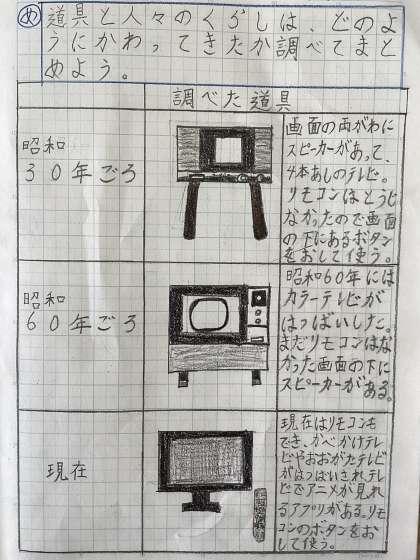 め
道具と人々のくらしは、どのよ
うにかわってきたか調べてまと
めよう。
調べた道具
昭和
30年ごろ
画面の両がわに
スピーカーがあって、
4本あしのテレビ。
リモコンはとうじ
なかったので画面
の下にあるボタン
をおして使う。
昭和
60年ごろ
昭和60年には
カラーテレビが
はっばいした。
まだリモコンはな
かった画面の下に
スピーカーがある。
現在
現在はリモコンも
でき、かべかけテレ
ビやおおがたテレビ
がはっばいされ、テレ
ビでアニメが見れ
るアプリがある。リモ
コンのボタンをお
して使う。